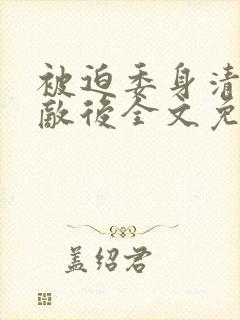 被迫委身清
敵後全文免
盖绍君